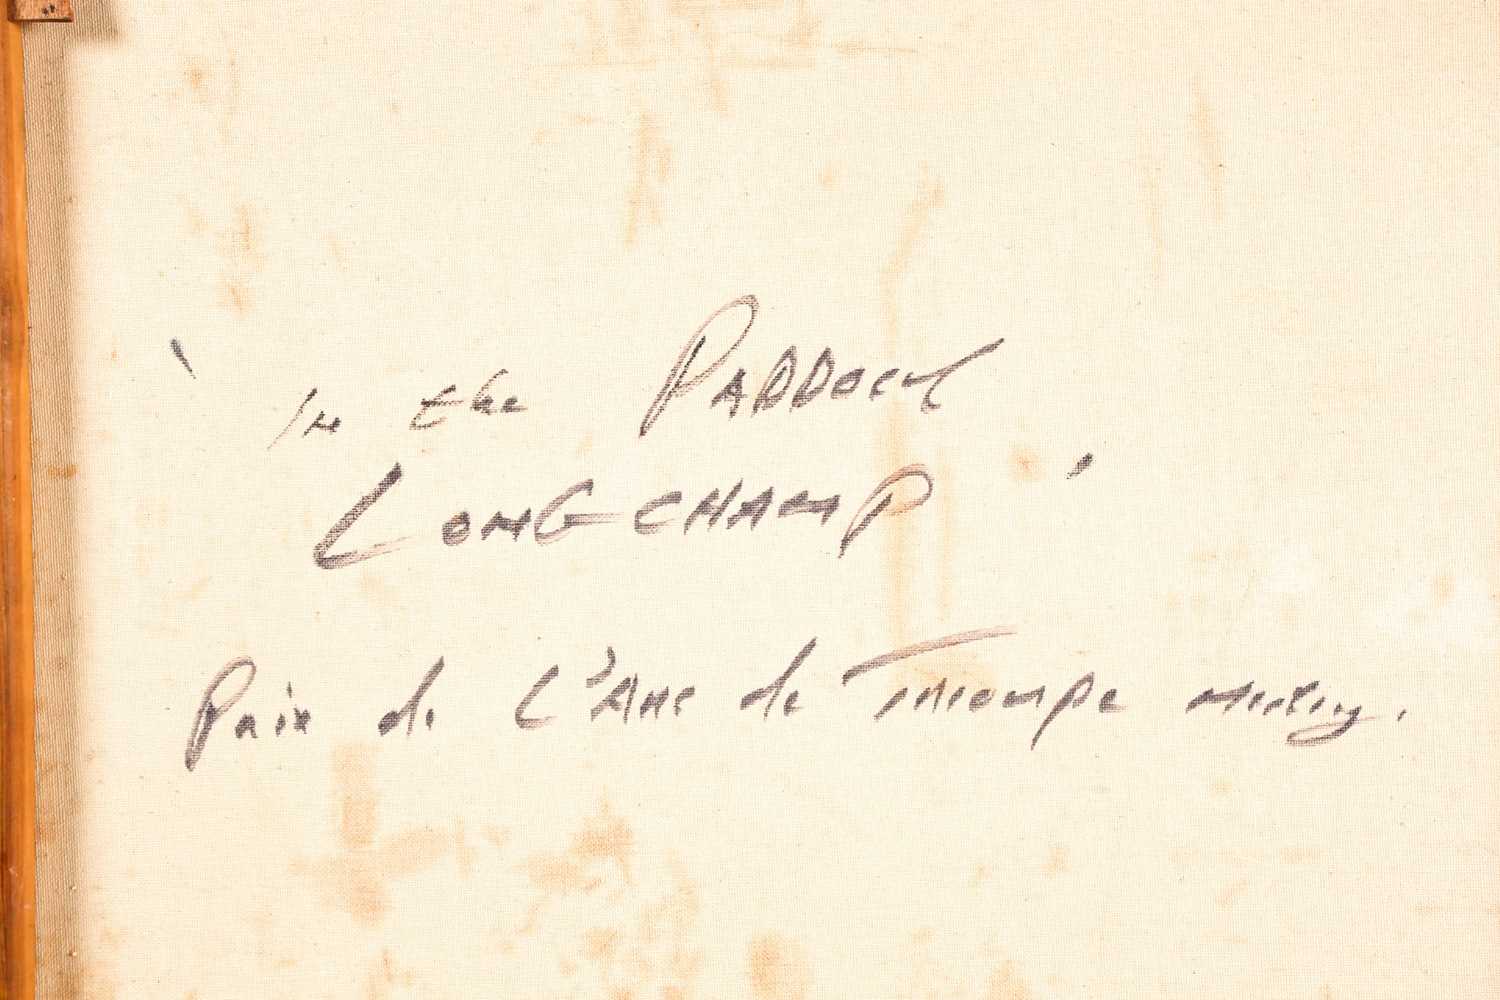 'In the PADDOCK
LONGCHAMP'
Prix de L'Arc de Triomphe Meeting.